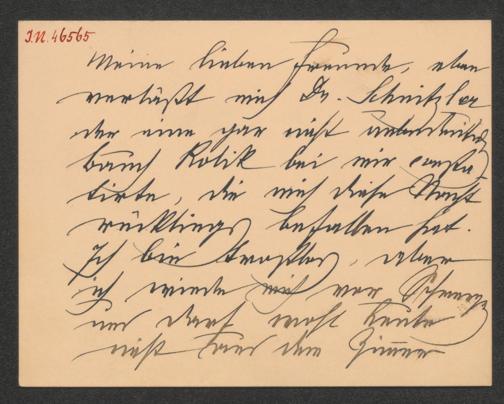 I.N. 46565
Meine lieben Freunde, eben
verläßt mich Dr. Schnitzler
der eine gar nicht unbedeutende
Bauch Kolik bei mir consta-
tirte, die mich diese Nacht
rücklings befallen hat.
Ich bin trostlos, aber
ich winde mich vor Schmerzen
und darf wohl heute
nicht aus dem Zimmer